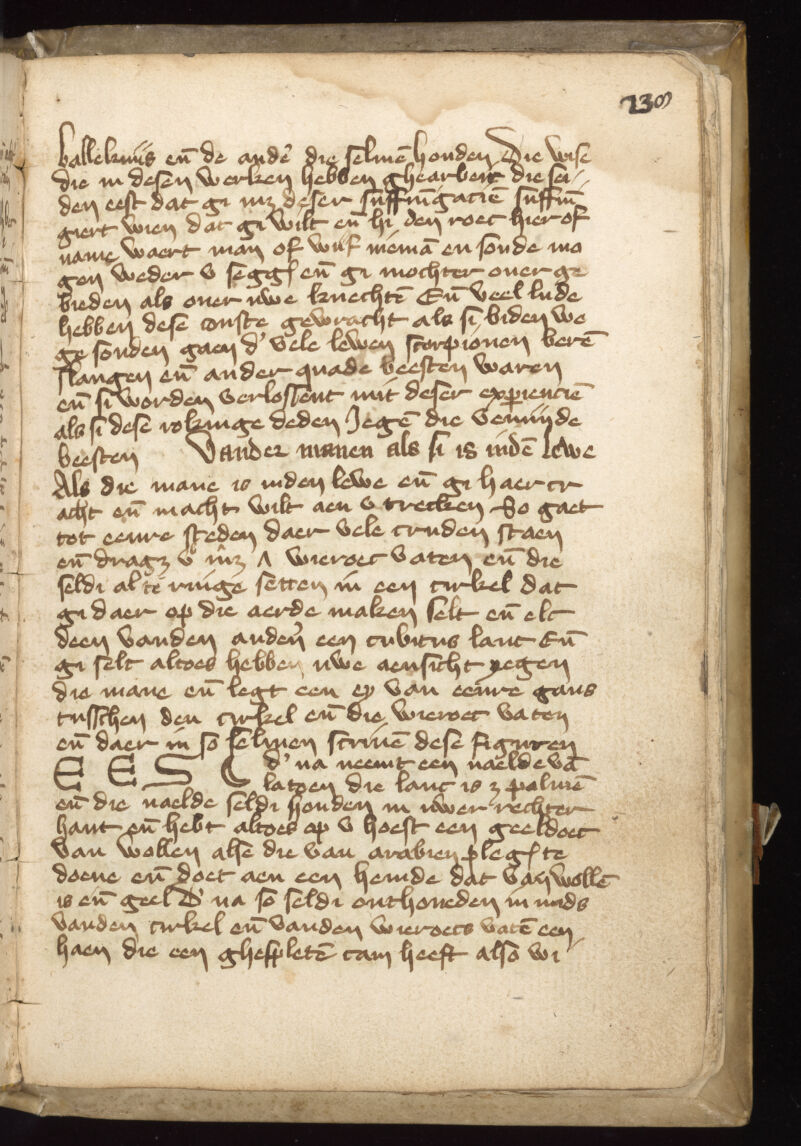 238
ballekijns en̄ de ander̄ die selmē houden Die wise
die in desen werken hebben ghearbeit die sei
den eest dat gi mz deser suffumigaciē suffumi
giert wien dat gi wilt en̄ hi den roec hier of
name waert man of wijf niemā en soude mo
gen weder v segg en̄ gi mochter ouer ge
bieden als ouer uwe knechtē En̄ veel lude
hebben dese conste gewracht als si biden we
ge souden gaen d' vele lewen scorpionen berē
slangen en̄ ander quade beesten waren
en̄ si worden verlossent mit deser experienciē
als si dese rokinge deden Jegē die venijnde
beesten Vander manen als si is indē lewe
Als die mane is inden lewe en̄ gi haer cr
acht en̄ macht wilt aen v trecken So gaet
tot eenre steden daer vele cruden staen
en̄ dragz v mz Λ wieroec vaten en̄ die
seldi al te ringe setten in een cirkel dat
gi daer op die aerde maken selt en̄ elc
deen vanden ander̄ een cubitus lanc En̄
gi selt altoes hebben uwe aensicht yegen
die mane en̄ legt een ey van eenre gans
tusschen den cirkel en̄ die wieroec vaten
en̄ daer in so selmen scriuē dese figuren
E E S C d' na neemt een naelde vā
latoen die lanc is 3 palmē
en̄ die naelde seldi houden in uwer rechter
hant en̄ hebt altoes op v hoeft een geel doec
van wollen alse die van arabien pleg te
doene en̄ doet aen een hemde dat van wollē
is en̄ geel D' na so seldi onthoueden in mids
vanden cirkel en̄ vanden wieroecs vatē een
haen die een ghespletē cam heeft also wi